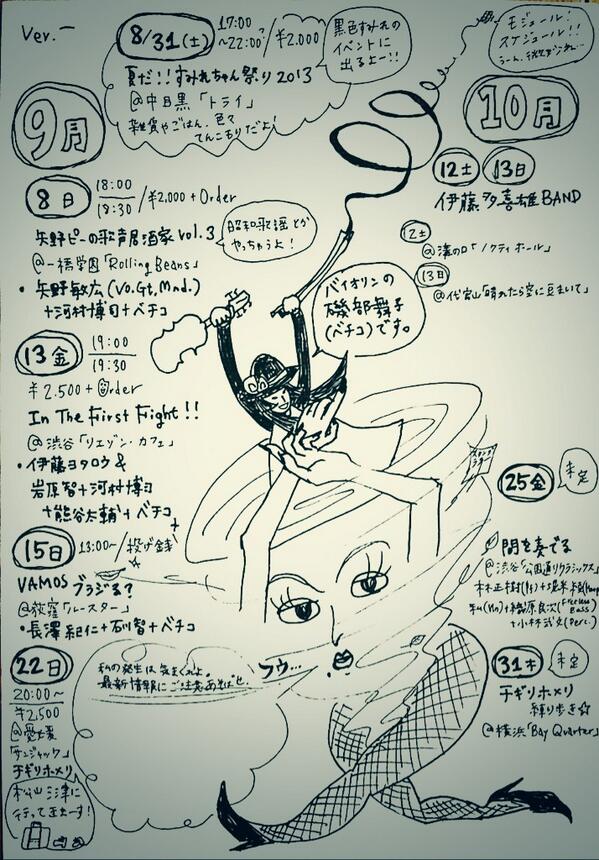 Ver.一
8/31(土) 17:00~22:00? / ¥2,000
夏だ!!すみれちゃん祭り2013
@中目黒「トライ」
雑貨やごはん、色々
てんこもりだよ!
黒色すみれの
イベントに
出るよー!!
9月
8日 18:00/18:30 / ¥2,000+Order
矢野ピーの歌声居酒家 vol.3
@一橋学園「Rolling Beans」
・矢野敏広(Vo.Gt.Mnd.)
+河村博司+ベチコ
昭和歌謡とか
やっちゃうよ!
13金 19:00/19:30
¥2.500+Order
In The First Fight!!
@渋谷「リエゾン・カフェ」
・伊藤ヨタロウ&
岩原智+河村博司
+熊谷太輔+ベチコ
15日 13:00~/投げ銭
VAMOS ブラジる?
@荻窪「ルースター」
・長澤紀仁+石川智+ベチコ
22日
20:00~
¥2,500
@愛媛
「サンジャック」
チギリホメリ
松山三津に
行って正まーす!
バイオリンの
磯部舞子
(ベチコ)です。
私の発生は気まぐれよ。
最新情報にご注意あそばせ。
フウ…
モジュール!
スケジュール!!
10月
12土 13日
伊藤多喜雄BAND
12土
@溝の口「ノクティホール」
13日
@代官山「晴れたら空に豆まいて」
25金 未定
閃を奏でる
@渋谷「公園通りクラシックス」
31木 未定
チギリホメリ
練り歩き☆
@横浜「Bay Quarter」